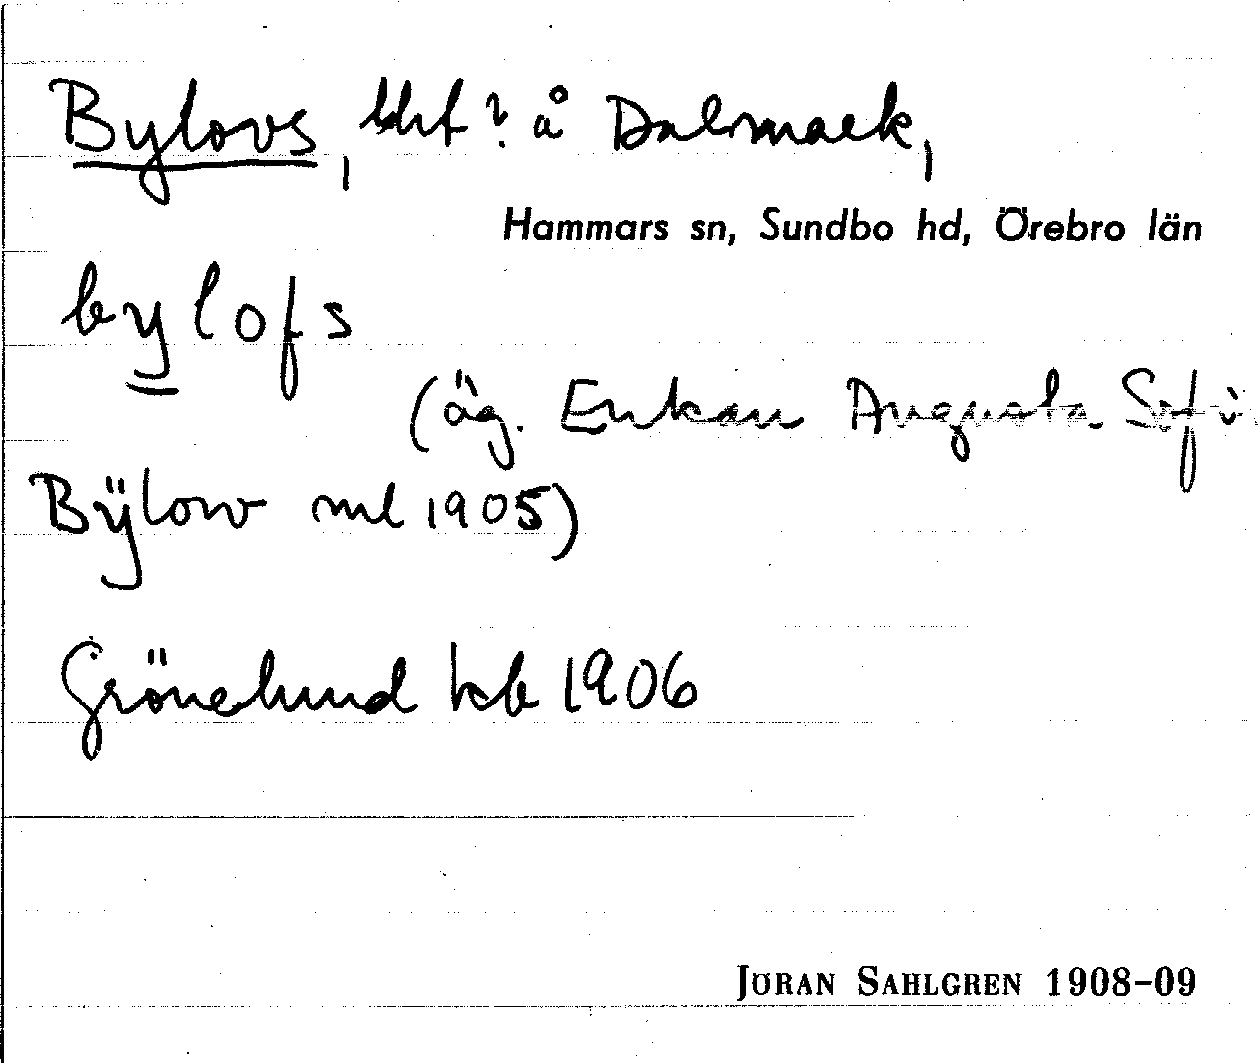 Bylovs, tht? å Dalmark,
Hammars sn, Sundbo hd, Örebro län
bylofs
(äg. Enkan Augusta Sofi
Bÿlow ml 1905)
Grönelund kb 1906
JÖRAN SAHLGREN 1908-09